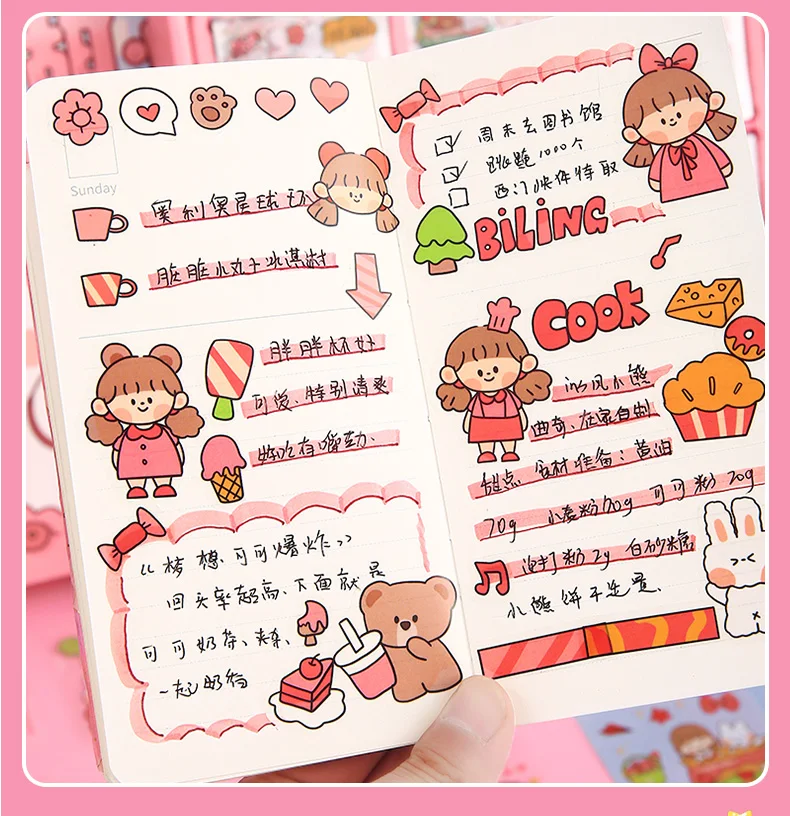 Sunday
奥利奥星球杯
脏脏小丸子冰淇淋
胖胖杯好
可爱、特别清爽
好吃有嚼劲、
“梦想可可爆炸”
回头率超高、下面就是
可可奶茶、
一起
周末去图书馆
跳跑1000个
西门快件待取
BiLiNG
COOK
小熊
曲奇、在家自制
甜点 食材准备:黄油
70g 小麦粉90g 可可粉20g
泡打粉2g 白砂糖
小熊饼干